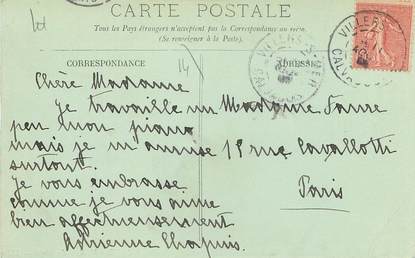 CARTE POSTALE
Tous les Pays étrangers n'acceptent pas la Correspondance au recto.
(Se renseigner à la Poste).
CORRESPONDANCE
ADRESSE
VILLERS
CALVADOS
14
Chère Madame
je travaille un
peu mon piano
mais je m'amuse
surtout.
Je vous embrasse
comme je vous aime
bien affectueusement
Adrienne Chapuis.
Madame Favre
15 rue Cavallotti
Paris